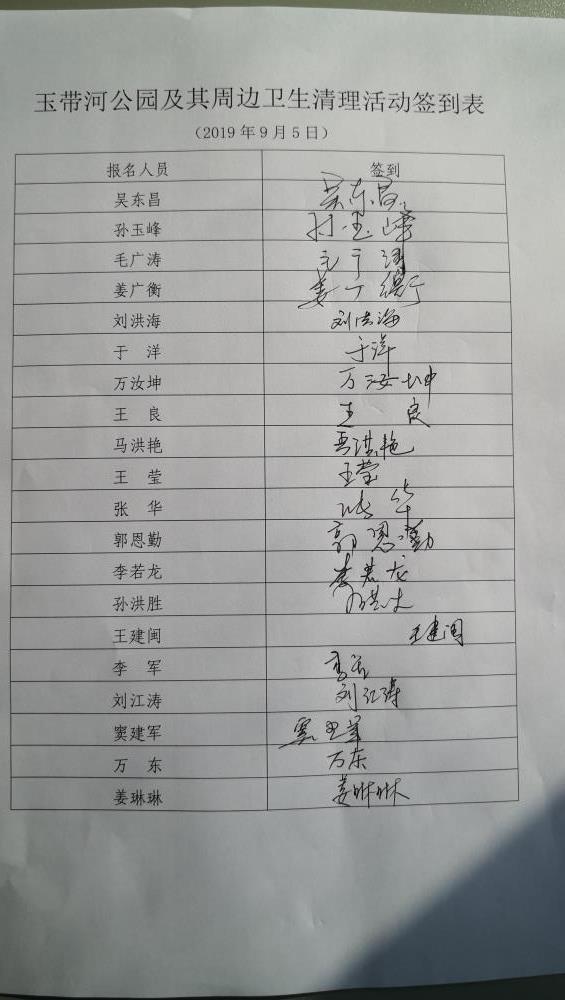 玉带河公园及其周边卫生清理活动签到表
（2019年9月5日）
报名人员 签到
吴东昌 吴东昌
孙玉峰 孙玉峰
毛广涛 毛广涛
姜广衡 姜广衡
刘洪海 刘洪海
于 洋 于洋
万汝坤 万汝坤
王 良 王 良
马洪艳 马洪艳
王 莹 王莹
张 华 张华
郭恩勤 郭恩勤
李若龙 李若龙
孙洪胜 孙洪胜
王建闽 王建闽
李 军 李军
刘江涛 刘江涛
窦建军 窦建军
万 东 万东
姜琳琳 姜琳琳